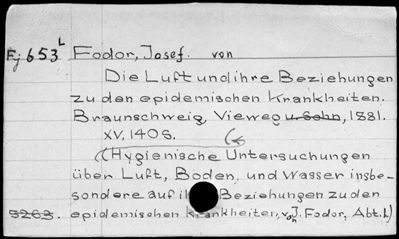 Fj 653 L Fodor, Josef. von
Die Luft und ihre Beziehungen
zu den epidemischen Krankheiten.
Braunschweig, Vieweg u. Sohn, 1881.
XV, 140 S.
(Hygienische Untersuchungen
über Luft, Boden, und Wasser insbe-
sondere auf Beziehungen zu den
3263. epidemischen Krankheiten, von J. Fodor, Abt. 1.)